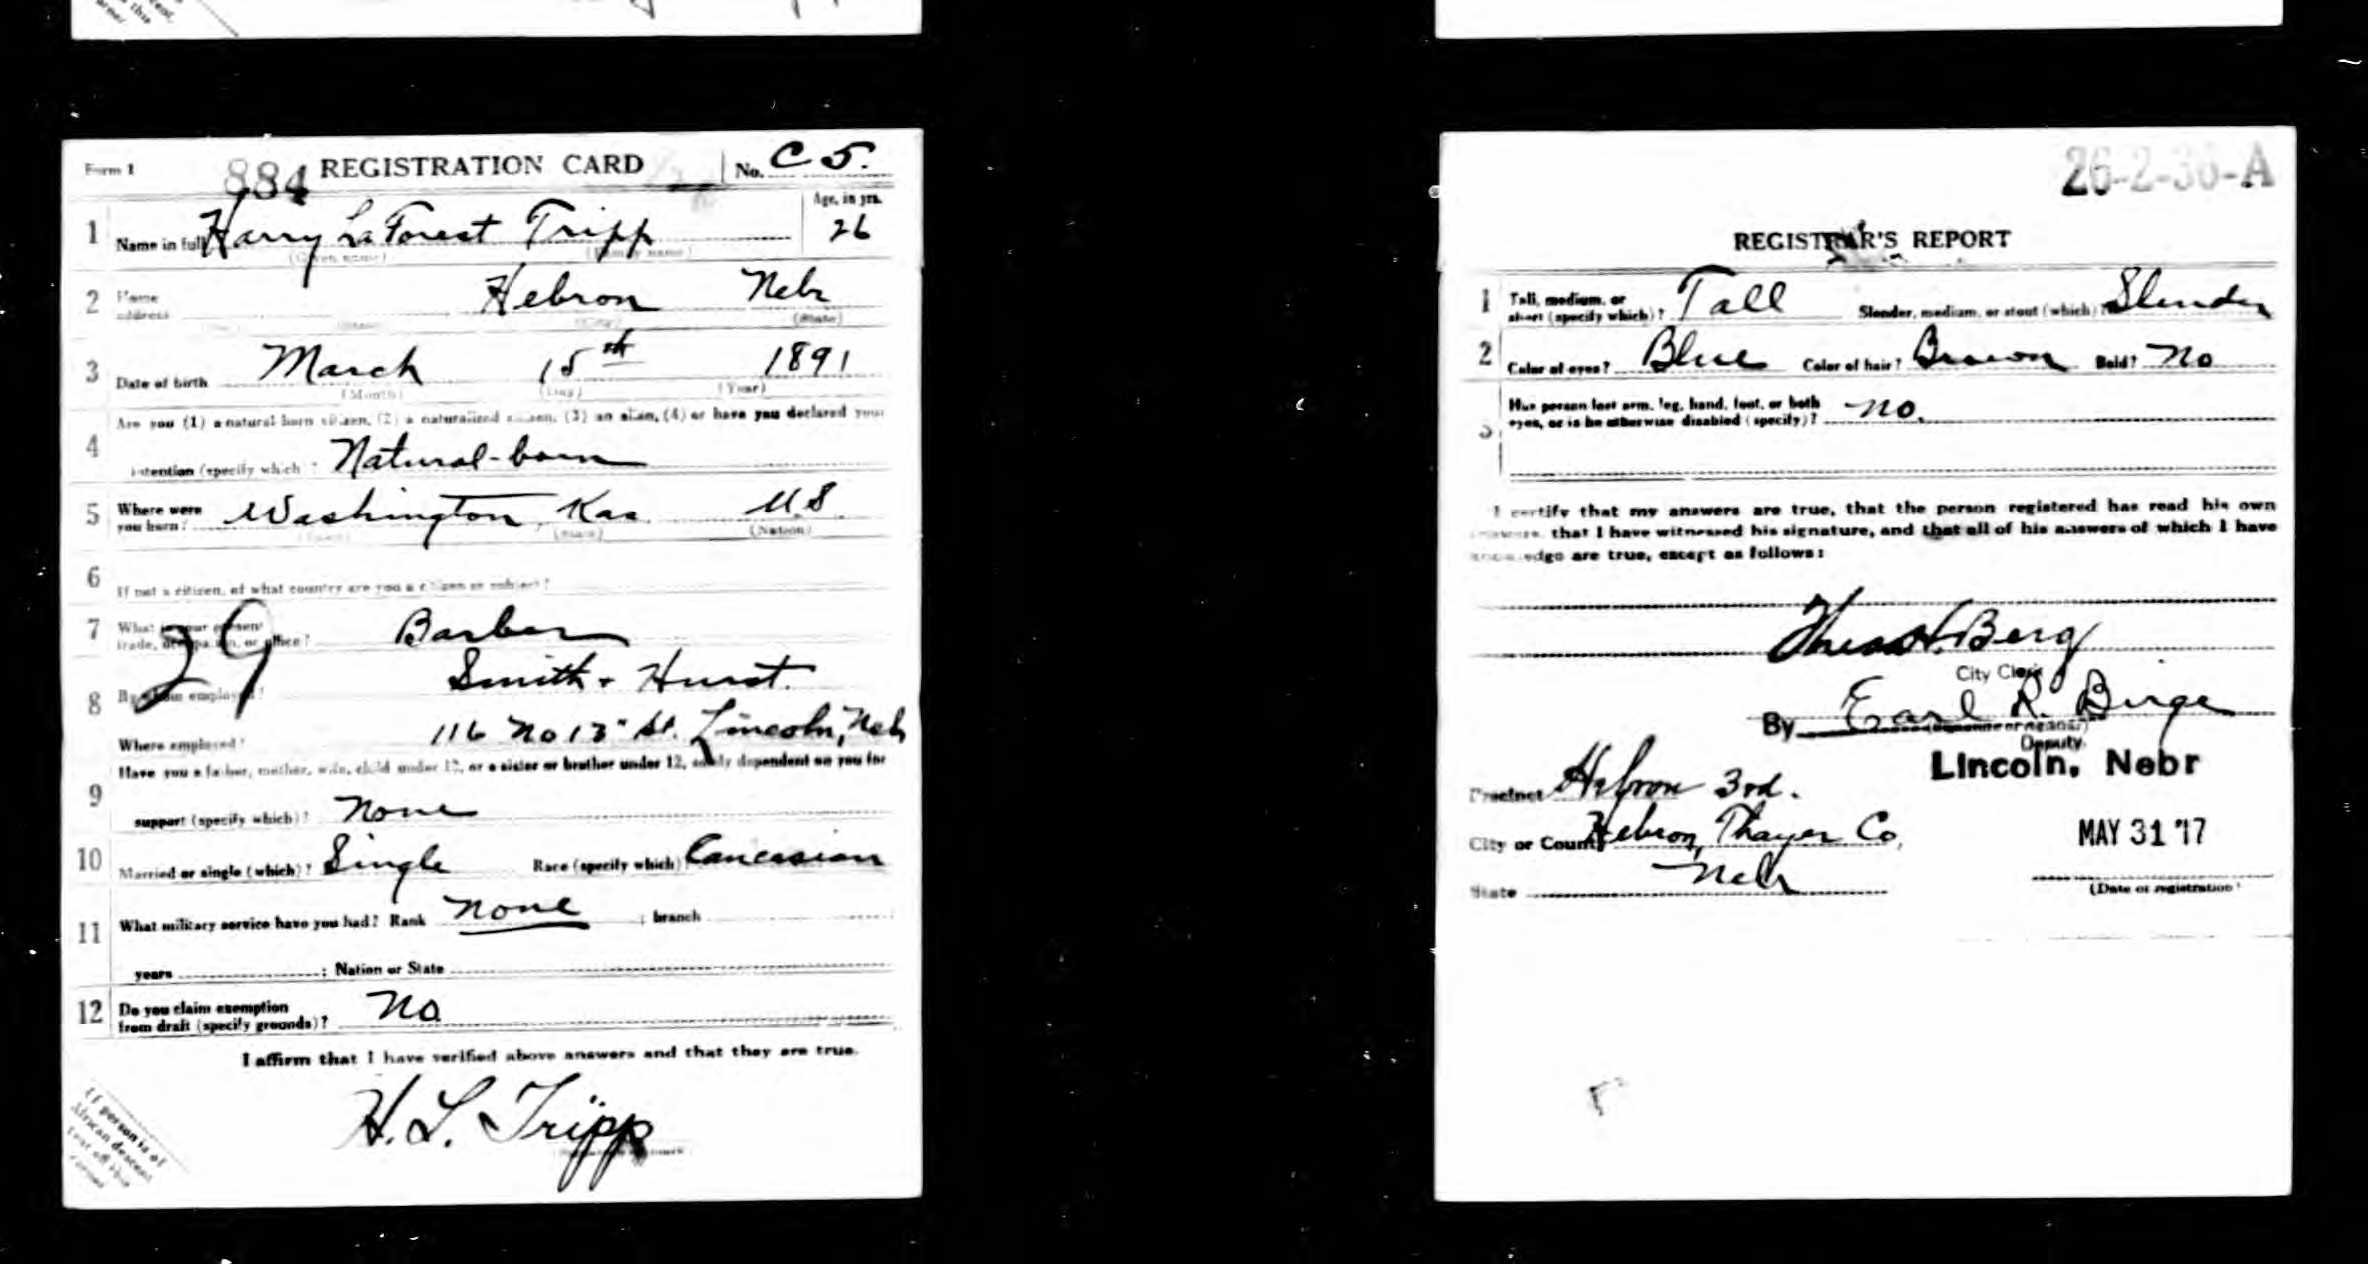 Form 1 884 REGISTRATION CARD No. C 5.
1 Name in full Harry La Forest Tripp Age, in yrs. 26
(Given name) (Family name)
2 Home address Hebron Nebr
(State)
3 Date of birth March 15th 1891
(Month) (Day) (Year)
4 Are you (1) a natural born citizen, (2) a naturalized citizen, (3) an alien, (4) or have you declared your
intention (specify which)? Natural-born
5 Where were you born? Washington, Kas. U.S.
(State) (Nation)
6 If not a citizen, of what country are you a citizen or subject?
7 What is your present trade, occupation, or office? Barber
29
8 By whom employed? Smith + Hurst.
Where employed? 116 No 13" St. Lincoln, Neb
9 Have you a father, mother, wife, child under 12, or a sister or brother under 12, solely dependent on you for
support (specify which)? None
10 Married or single (which)? Single Race (specify which) Caucasian
11 What military service have you had? Rank none ; branch
years ; Nation or State
12 Do you claim exemption from draft (specify grounds)? No
I affirm that I have verified above answers and that they are true.
H. L. Tripp
If person is of
African descent
tear off this
corner
26-2-36-A
REGISTRAR'S REPORT
1 Tall, medium, or short (specify which)? Tall Slender, medium, or stout (which)? Slender
2 Color of eyes? Blue Color of hair? Brown Bald? No
3 Has person lost arm, leg, hand, foot, or both
eyes, or is he otherwise disabled (specify)? no.
I certify that my answers are true, that the person registered has read his own
answers, that I have witnessed his signature, and that all of his answers of which I have
knowledge are true, except as follows:
Theo H. Berg
City Clerk
By Earl R. Birge
Deputy
Lincoln, Nebr
Precinct Hebron 3rd.
City or County Hebron, Thayer Co, MAY 31 '17
State Nebr (Date of registration)